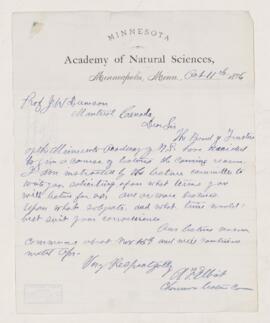 MINNESOTA
Academy of Natural Sciences,
Minneapolis, Minn. Oct 11th 1876
Prof J W Dawson
Montreal Canada
Dear Sir
The Board of Trustees
of the Minnesota Academy of N.S. have decided
to give a course of lectures the coming season.
I am instructed by the lecture committee to
write you soliciting upon what terms you
will lecture for us. one or more lectures
upon what subjects, and what time would
best suit your convenience.
Our lectures season
commence about Nov 15th and will continue
until Apr.
Very Respectfully
Chairman Lecture Com